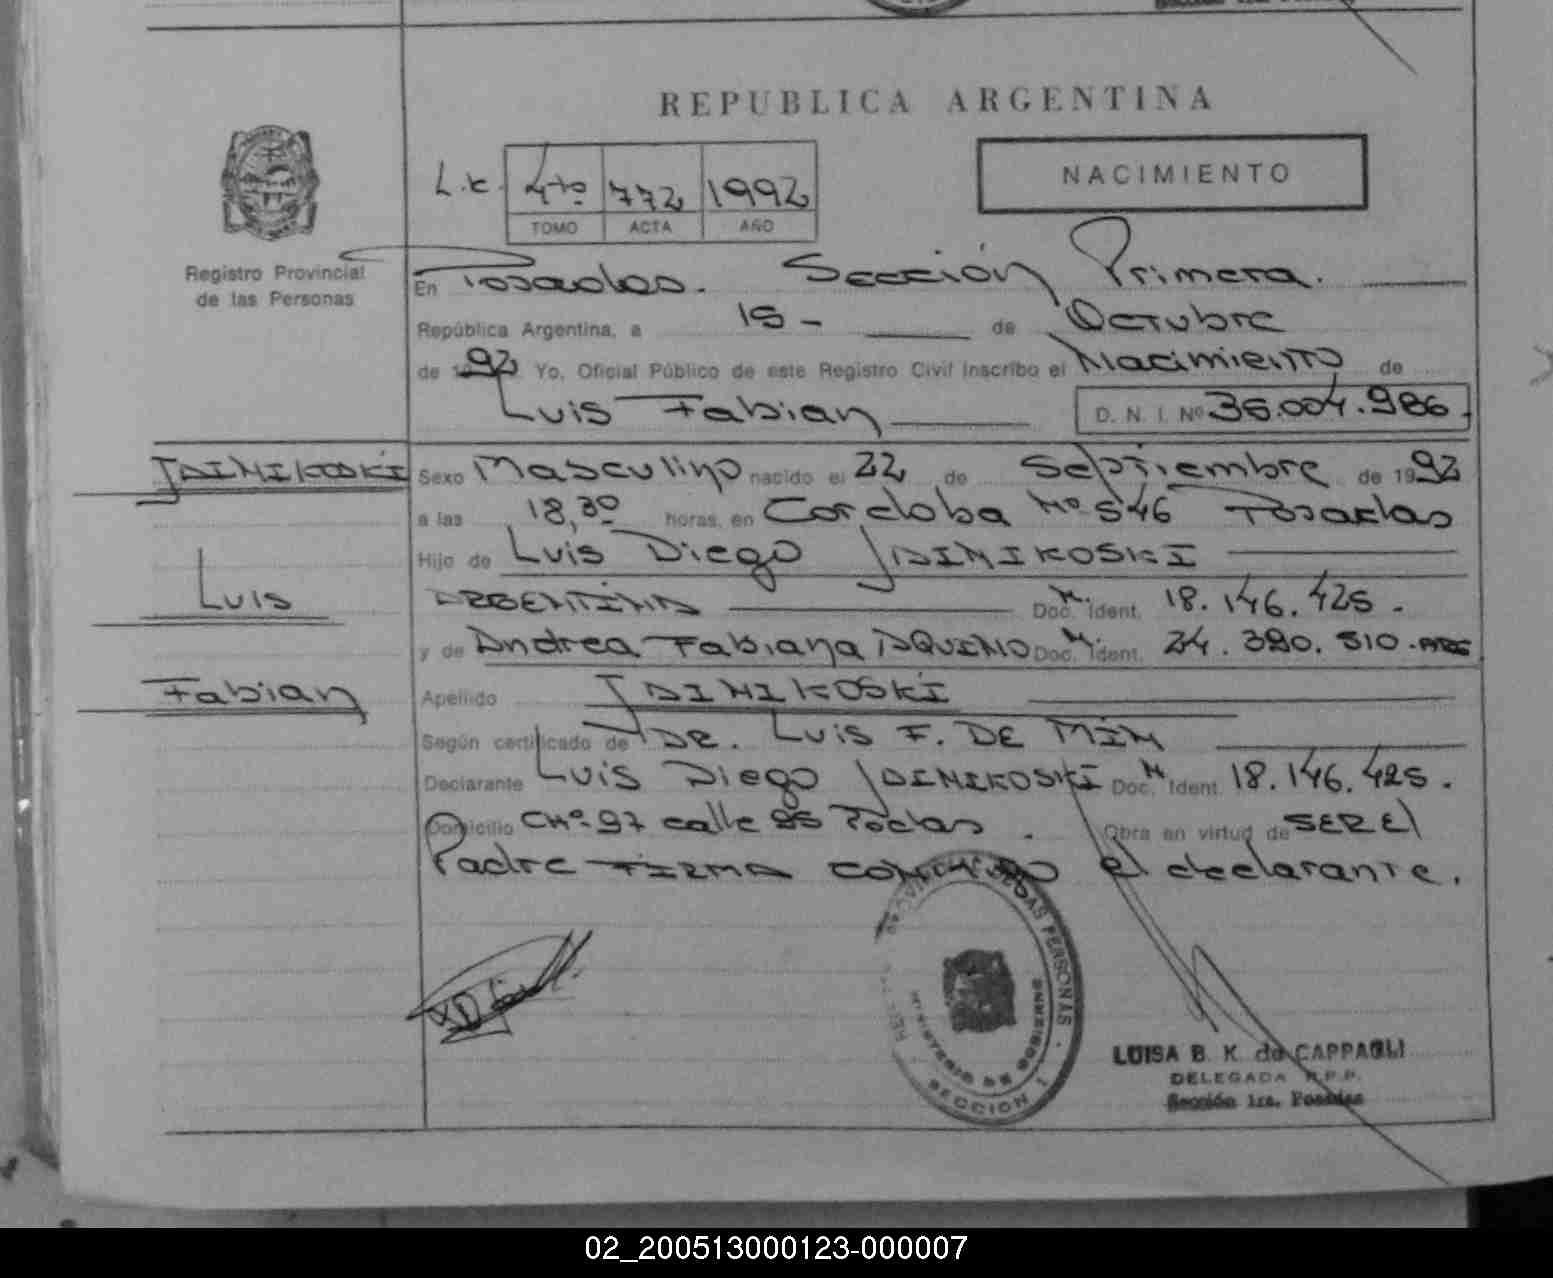 REPUBLICA ARGENTINA
NACIMIENTO
L.c. 4to 772 1992
TOMO ACTA AÑO
Registro Provincial
de las Personas
En Posadas. Sección Primera.
República Argentina, a 15 - de Octubre
de 1992 Yo, Oficial Público de este Registro Civil inscribo el Nacimiento de
Luis Fabian D. N. I. Nº 36.004.986.
JAINIKOSKI Sexo Masculino nacido el 22 de Septiembre de 1992
a las 18,30 horas, en Cordoba Nº 546 Posadas
Hijo de Luis Diego JAINIKOSKI
Luis
ARGENTINA Doc. M. Ident. 18.146.425.
y de Andrea Fabiana AQUINO Doc. M. Ident. 24.390.510.
Fabian
Apellido JAINIKOSKI
Según certificado de DR. Luis F. DE MIN
Declarante Luis Diego JAINIKOSKI Doc. M Ident. 18.146.425.
Domicilio CHº 97 calle Podas. Obra en virtud de SER El
Padre FIRMA CONMIGO el declarante.
PERSONAS
MINISTERIO DE GOBIERNO
SECCION 1
LUISA B. K. de CAPPAGLI
DELEGADA R.P.P.
Sección 1ra. Posadas
02_200513000123-000007